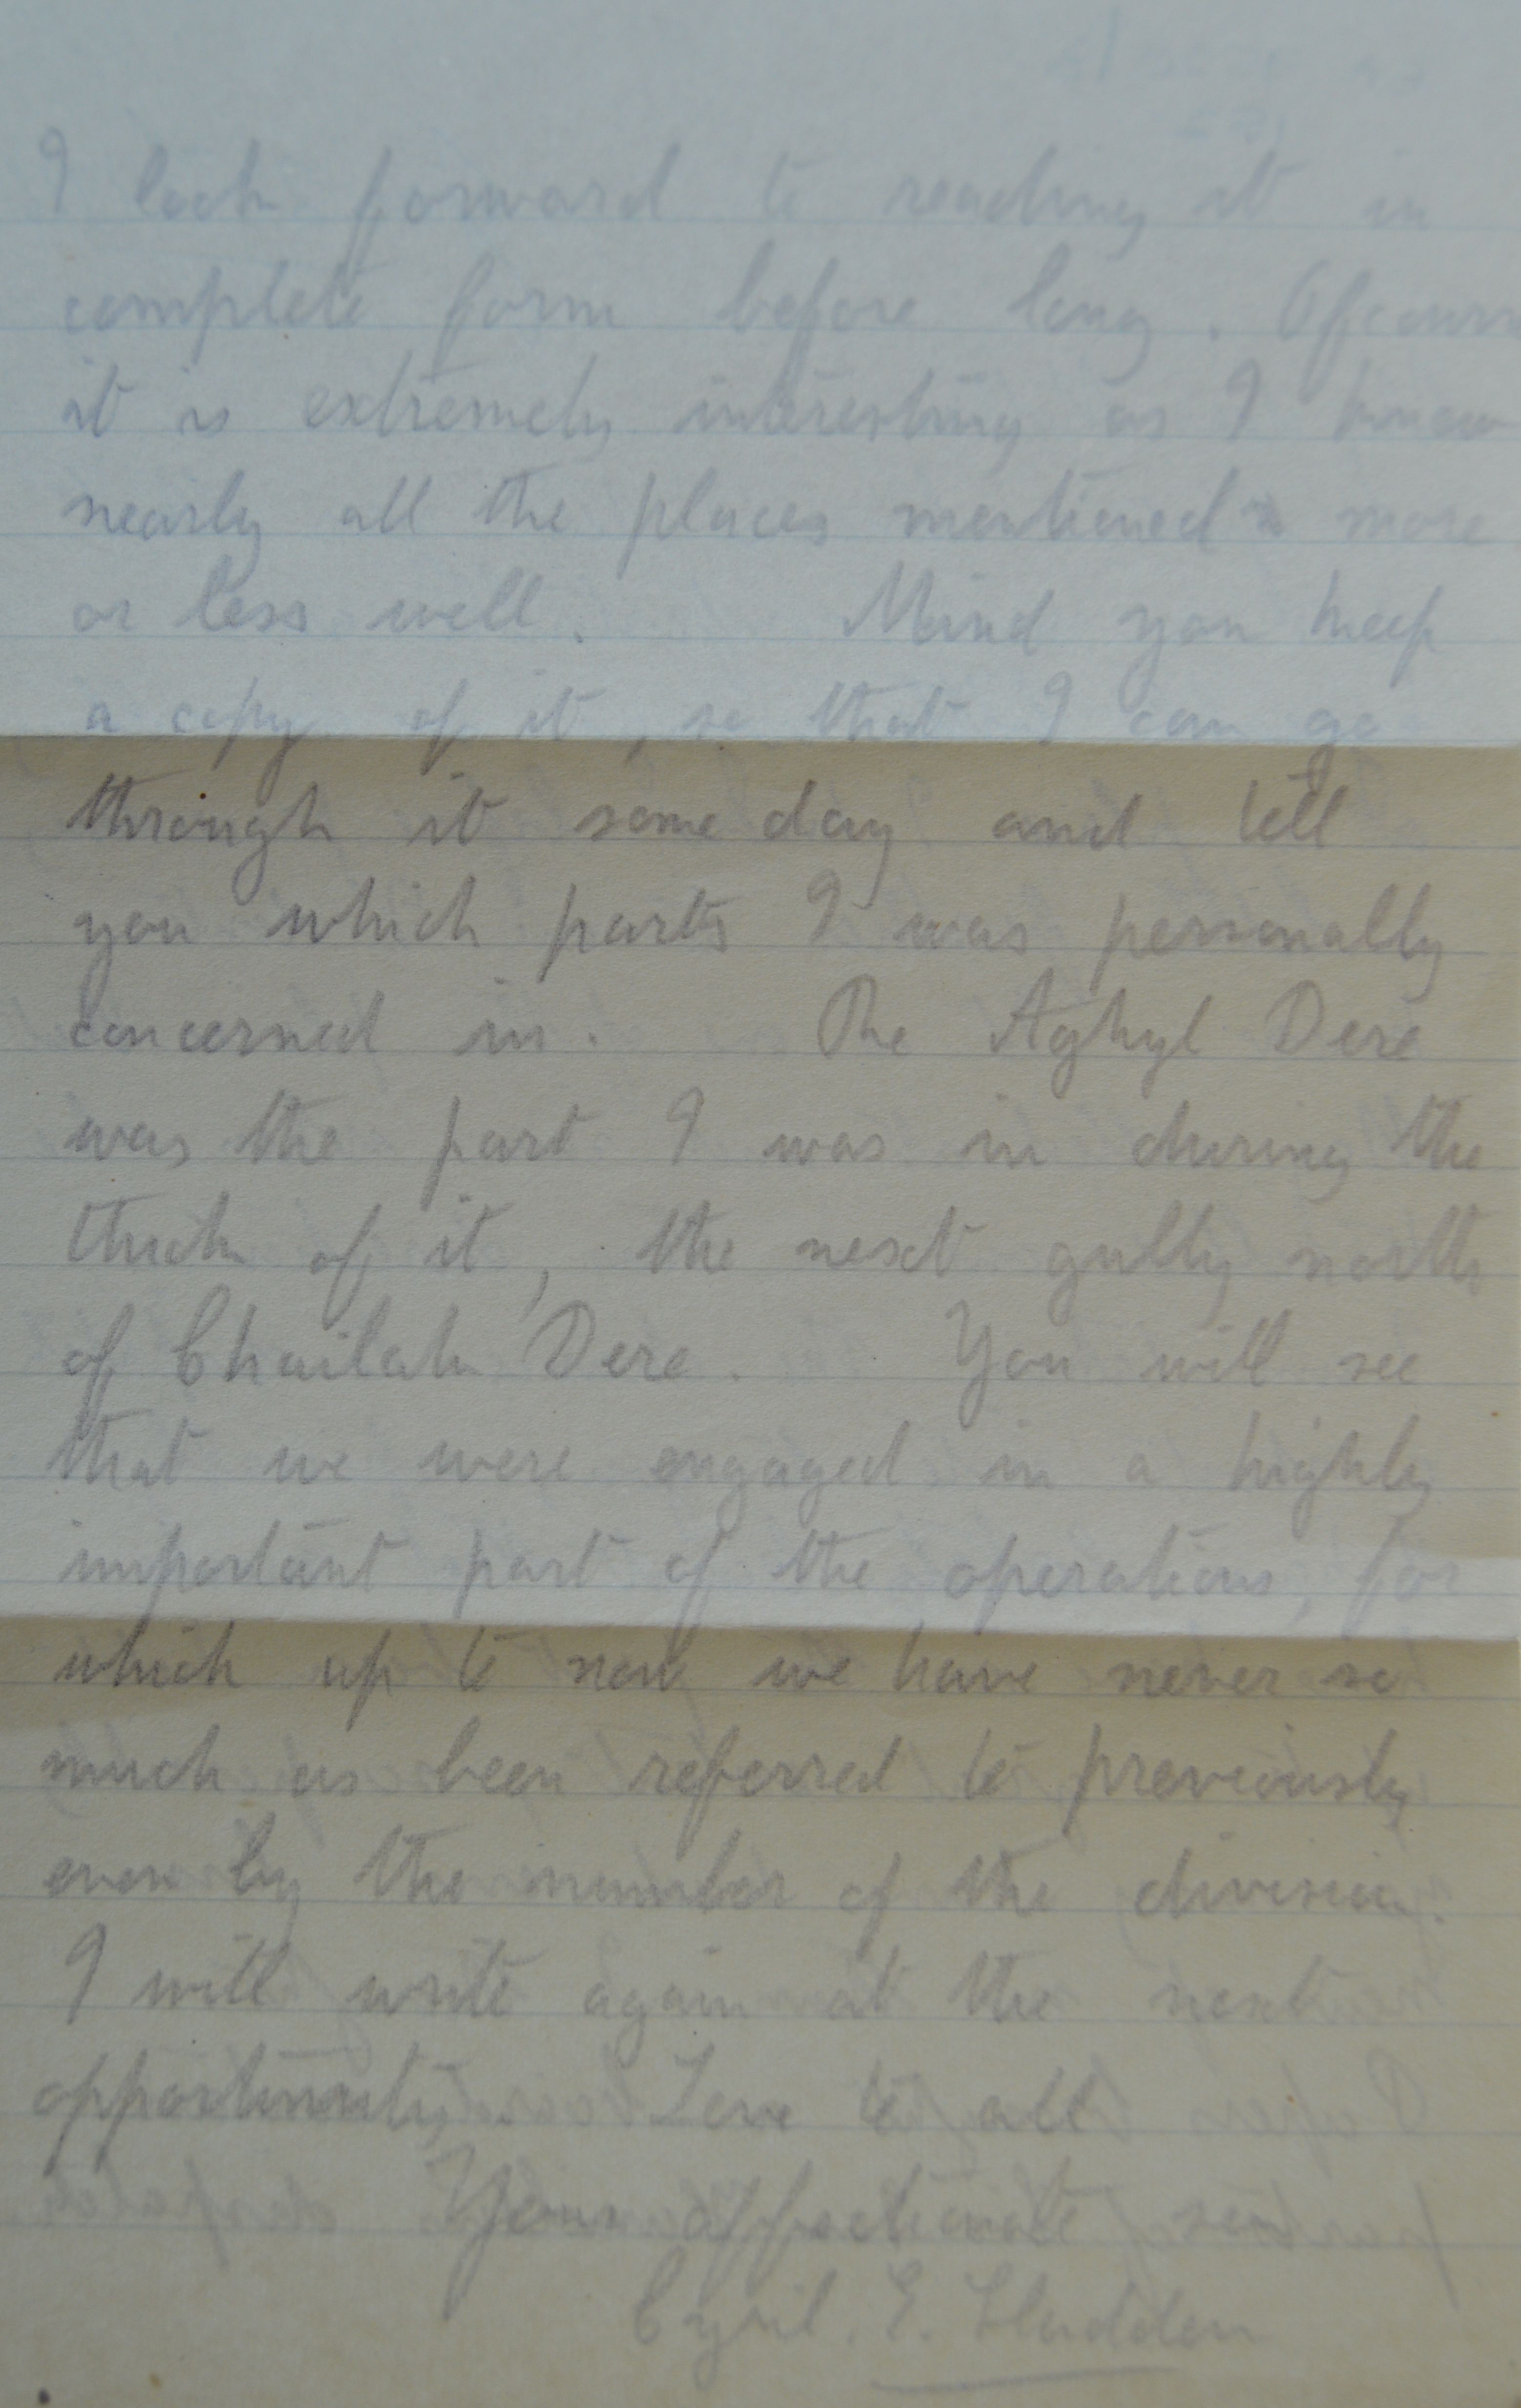 I look forward to reading it in
complete form before long. Ofcourse
it is extremely interesting as I know
nearly all the places mentioned more
or less well. Mind you keep
a copy of it, so that I can go
through it some day and tell
you which parts I was personally
concerned in. The Aghyl Dere
was the part I was in during the
thick of it, the next gully north
of Chailak Dere. You will see
that we were engaged in a highly
important part of the operations, for
which up to now we have never so
much as been referred to previously
even by the number of the division.
I will write again at the next
opportunity. Love to all
Your affectionate son
Cyril. E. Sladden